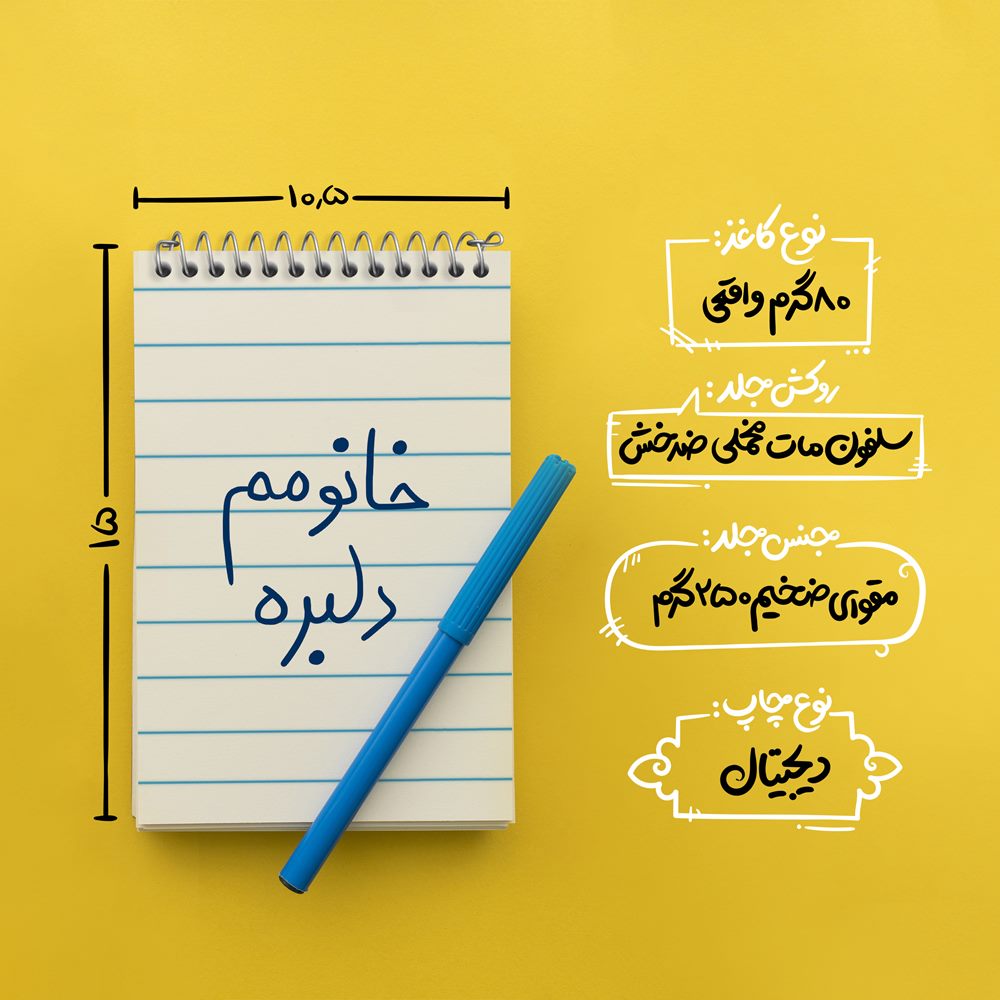 ۱۰٫۵
۱۵
خانومم
دلبره
نوع کاغذ:
۸۰ گرم واقعی
روکش جلد:
سلفون مات مخملی ضدخش
جنس جلد:
مقوای ضخیم ۲۵۰ گرم
نوع چاپ:
دیجیتال